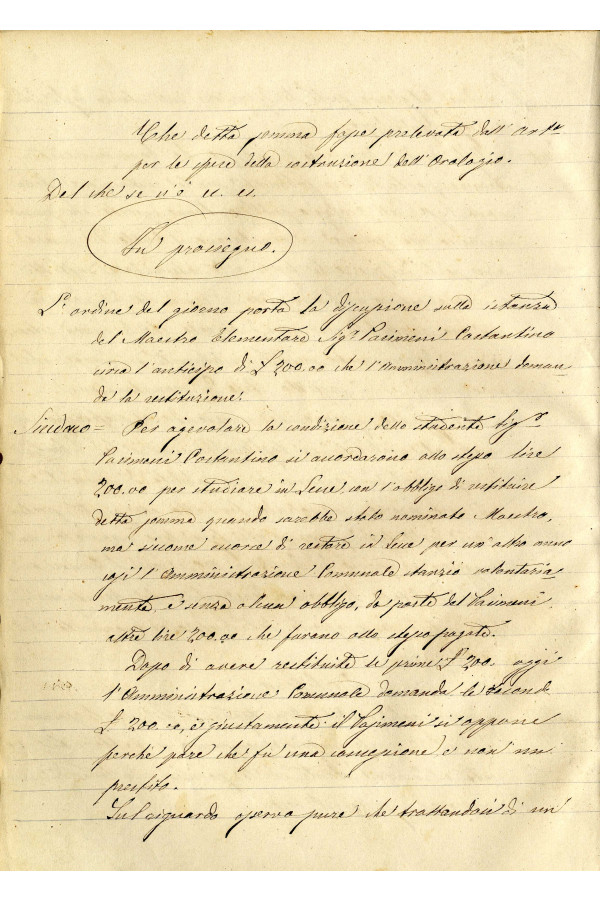 Che detta somma fosse prelevata dall' art.
per le spese della costruzione dell' Orologio.
Del che se n'è ec. ec.
In prosieguo.
L'ordine del giorno porta la discussione sulla istanza
del Maestro Elementare Sig.r Pacimeni Costantino
circa l'anticipo di £ 200.00 che l'Amministrazione doman-
da la restituzione.
Sindaco = Per agevolare la condizione dello studente Sig.r
Pacimeni Costantino si accordarono allo stesso lire
200.00 per studiare in Lecce, con l'obbligo di restituire
detta somma quando sarebbe stato nominato Maestro,
ma siccome di restare in Lecce per un'altro anno
l'Amministrazione Comunale stanziò volontaria-
mente, e senza alcun' obbligo, da parte del
altre lire 200.00 che furono allo stesso pagate.
Dopo di avere restituite le prime £ 200. oggi
l'Amministrazione Comunale domanda le seconde
£ 200.00, e giustamente il si oppone
perchè pare che fu una concessione e non un
prestito.
Sul riguardo osserva pure che trattandosi di un'